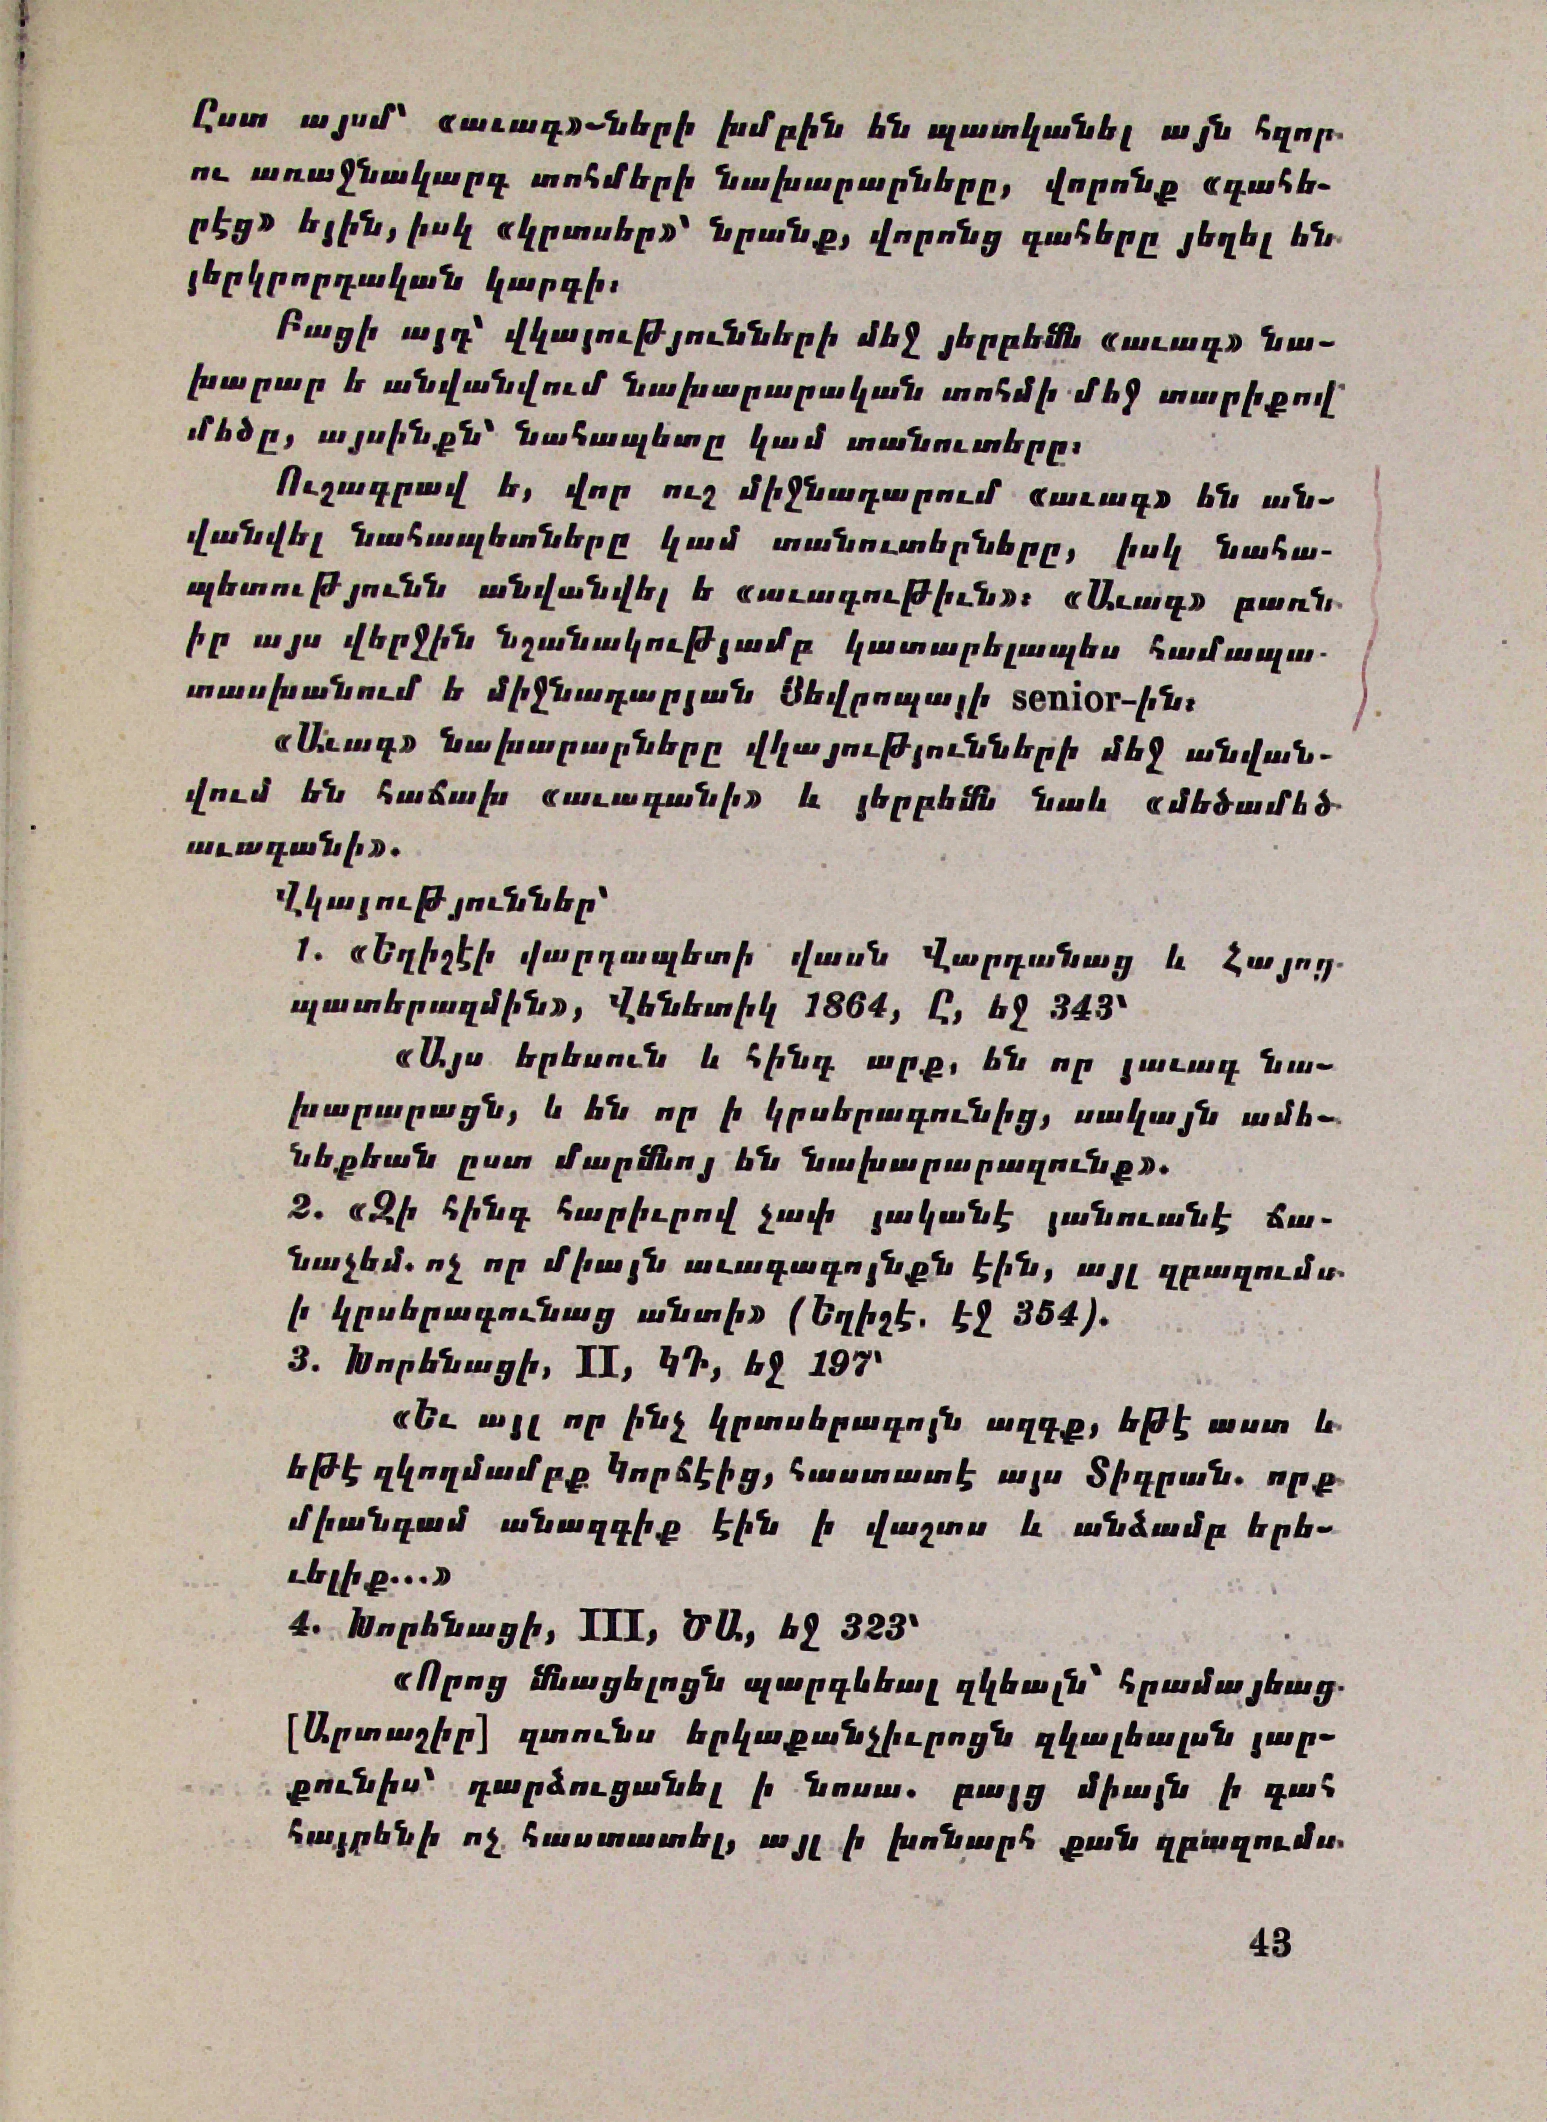 Ըստ այսմ՝ «աւագ»-ների խմբին են պատկանել այն հզոր
ու առաջնակարգ տոհմերի նախարարները, վորոնք «գահե-
րէց» եյին, իսկ «կրտսեր»՝ նրանք, վորոնց գահերը յեղել են
յերկրորդական կարգի։
Բացի այդ՝ վկայությունների մեջ յերբեմն «աւագ» նա-
խարար ե անվանվում նախարարական տոհմի մեջ տարիքով
մեծը, այսինքն՝ նահապետը կամ տանուտերը։
Ուշագրավ ե, վոր ուշ միջնադարում «աւագ» են ան-
վանվել նահապետները կամ տանուտերները, իսկ նահա-
պետությունն անվանվել ե «աւագութիւն»։ «Աւագ» բառն
իր այս վերջին նշանակությամբ կատարելապես համապա-
տասխանում ե միջնադարյան Յեվրոպայի senior-ին։
«Աւագ» նախարարները վկայությունների մեջ անվան-
վում են հաճախ «աւագանի» և յերբեմն նաև «մեծամեծ
աւագանի».
Վկայություններ՝
1. «Եղիշէի վարդապետի վասն Վարդանաց և Հայոց
պատերազմին», Վենետիկ 1864, Ը, եջ 343՝
«Այս երեսուն և հինգ արք, են որ յաւագ նա-
խարարացն, և են որ ի կրսերագունից, սակայն ամե-
նեքեան ըստ մարմնոյ են նախարարազունք».
2. «Զի հինգ հարիւրով չափ յականէ յանուանէ ճա-
նաչեմ. ոչ որ միայն աւագագոյնքն էին, այլ զբազումս
ի կրսերագունաց անտի» (Եղիշէ. էջ 354).
3. Խորենացի, II, ԿԴ, եջ 197՝
«Եւ այլ որ ինչ կրտսերագոյն ազգք, եթէ աստ և
եթէ զկողմամբք Կորճէից, հաստատէ այս Տիգրան. որք
միանգամ անազգիք էին ի վաշտս և անձամբ երե-
ւելիք...»
4. Խորենացի, III, ԾԱ, եջ 323՝
«Որոց մնացելոցն պարգևեալ զկեալն՝ հրամայեաց
[Արտաշիր] զտունս երկաքանչիւրոցն զկալեալսն յար-
քունիս՝ դարձուցանել ի նոսա. բայց միայն ի գահ
հայրենի ոչ հաստատել, այլ ի խոնարհ քան զբազումս
43